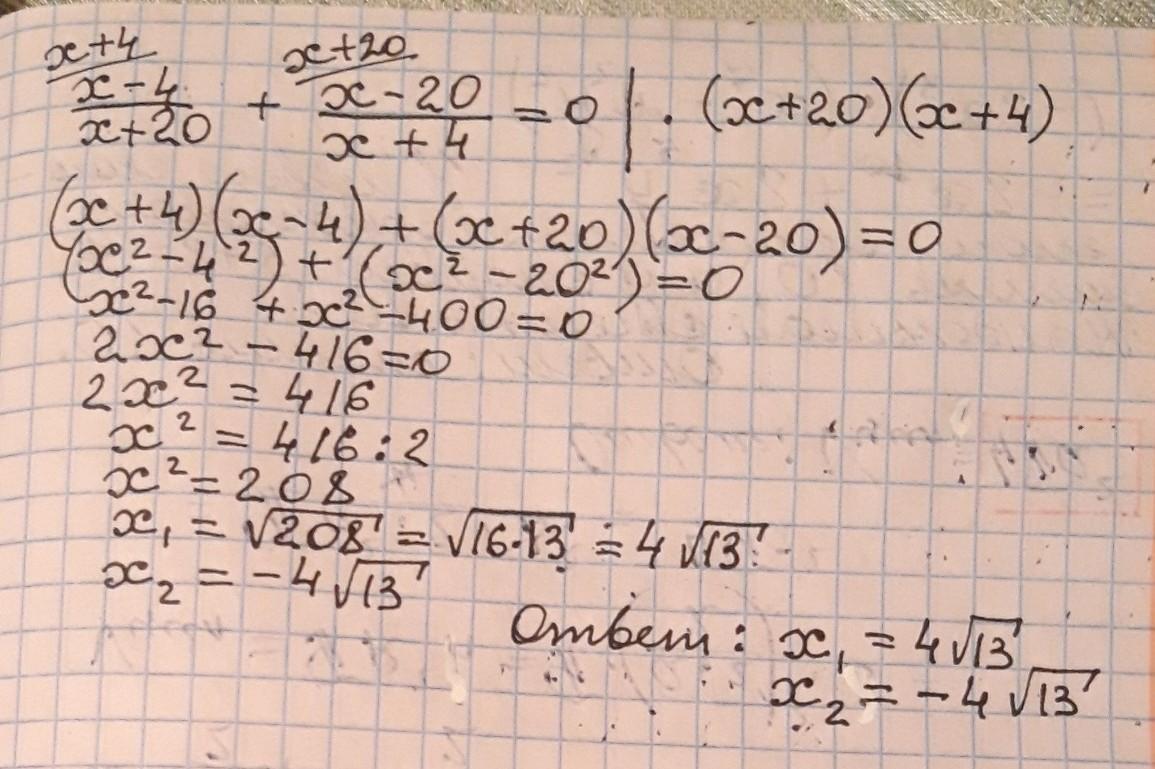 x+4 x+20
x-4/x+20 + x-20/x+4 = 0 | · (x+20)(x+4)
(x+4)(x-4)+(x+20)(x-20)=0
(x²-4²)+(x²-20²)=0
x²-16 +x²-400=0
2x²-416=0
2x²=416
x²=416:2
x²=208
x₁=√208=√16·13=4√13
x₂=-4√13
Ответ: x₁=4√13
x₂=-4√13